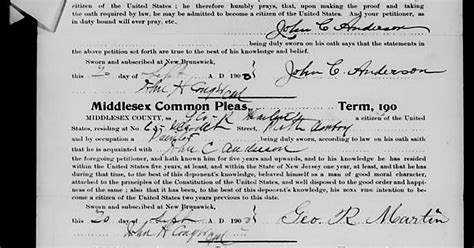 citizen of the United States ; he therefore humbly prays, that, upon making the proof and taking
the oath required by law, he may be admitted to become a citizen of the United States. And your petitioner, as
in duty bound will ever pray, etc.
John C Anderson
being duly sworn on his oath says that the statements in
the above petition set forth are true to the best of his knowledge and belief.
Sworn and subscribed at New Brunswick,
this 20 day of Sept A. D. 190
John C. Anderson
John H Conger
Middlesex Common Pleas, Term, 190
MIDDLESEX COUNTY, ss. Geo R Martin a citizen of the United
States, residing at No. Street, Perth Amboy
and by occupation a being duly sworn, according to law on his oath saith
that he is acquainted with John C Anderson
the foregoing petitioner, and hath known him for five years and upwards, and to his knowledge he has resided
within the United States five years, at least, and within the State of New Jersey one year, at least, and that he has
during that time, to the best of this deponent's knowledge, behaved himself as a man of good moral character,
attached to the principles of the Constitution of the United States, and well disposed to good order and happi-
ness of the same ; also that it has been, to the best of this deponent's knowledge, his bona fide intention to be-
come a citizen of the United States two years previous to this date.
Sworn and subscribed at New Brunswick,
this 20 day of Sept A. D. 190
Geo. R. Martin
John H Conger